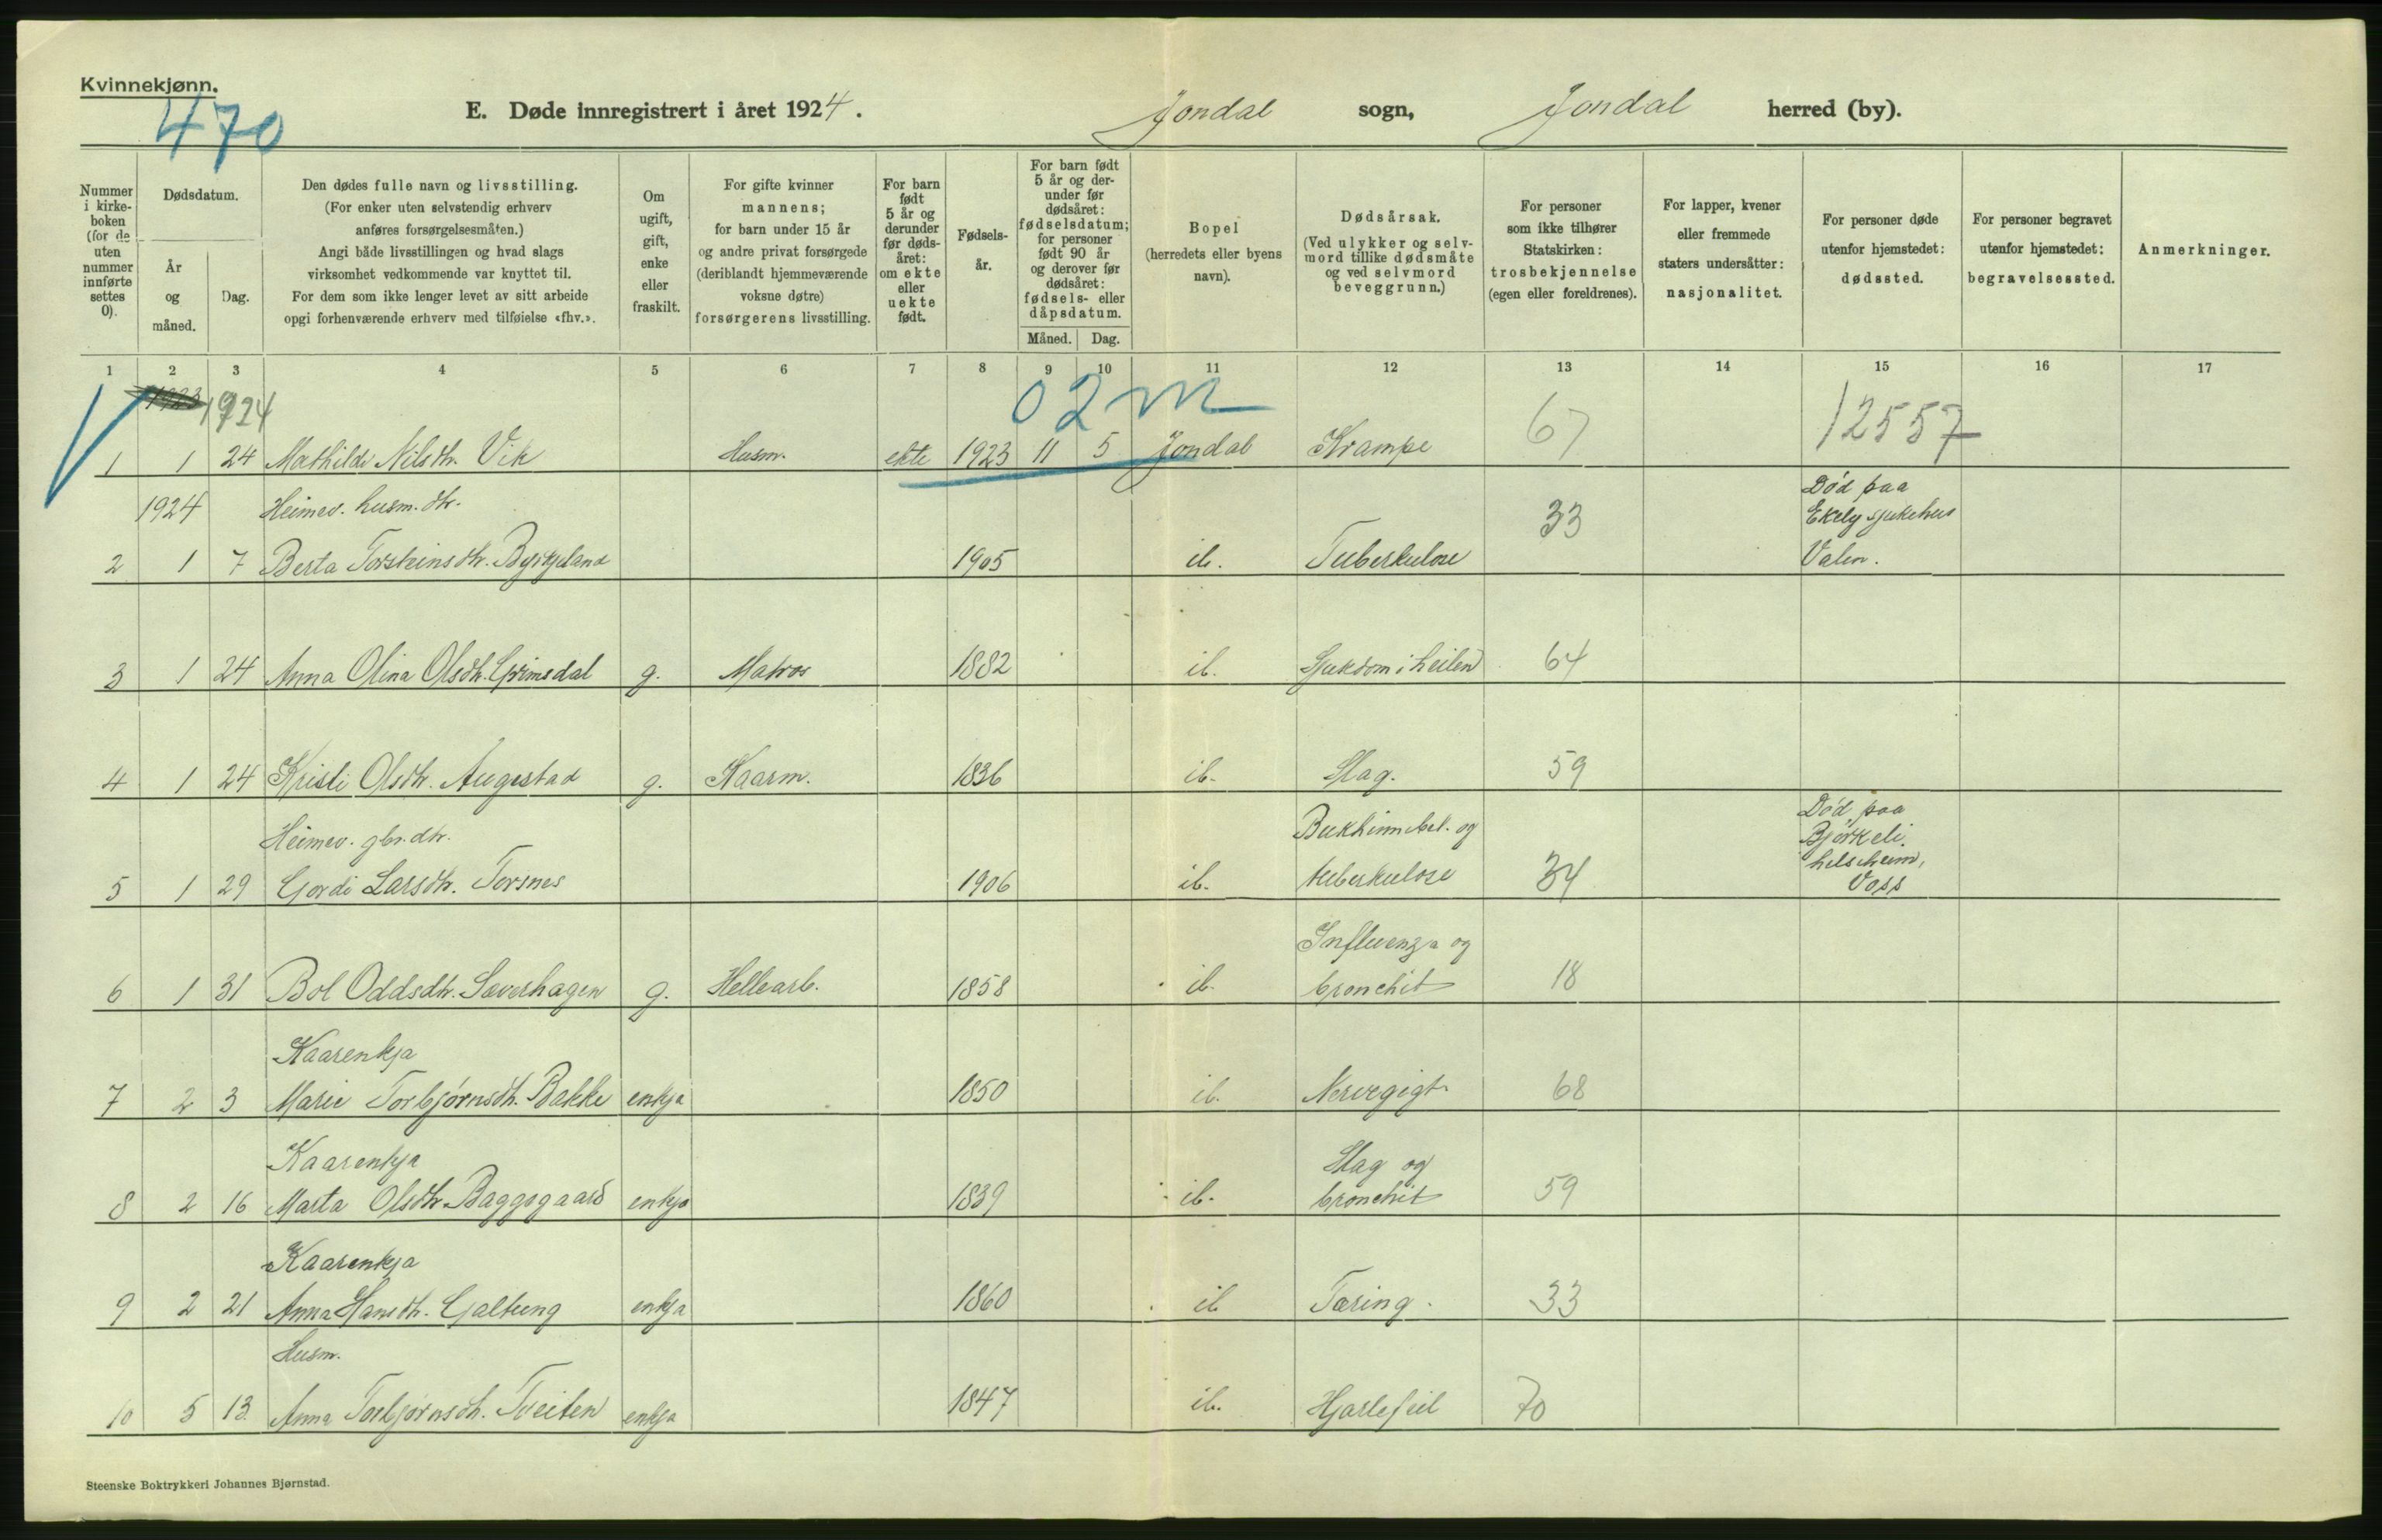 Kvinnekjønn.
470
E. Døde innregistrert i året 1924. Jondal sogn, Jondal herred (by).
Nummer i kirke- boken (for de uten nummer innførte settes 0).
Dødsdatum.
År og måned.
Dag.
Den dødes fulle navn og livsstilling.
(For enker uten selvstendig erhverv
anføres forsørgelsesmåten.)
Angi både livsstillingen og hvad slags
virksomhet vedkommende var knyttet til.
For dem som ikke lenger levet av sitt arbeide
opgi forhenværende erhverv med tilføielse «fhv.».
Om ugift, gift, enke eller fraskilt.
For gifte kvinner
mannens;
for barn under 15 år
og andre privat forsørgede
(deriblandt hjemmeværende
voksne døtre)
forsørgerens livsstilling.
For barn født 5 år og derunder før døds- året: om ekte eller uekte født.
Fødsels- år.
For barn født
5 år og der-
under før
dødsåret:
fødselsdatum;
for personer
født 90 år
og derover før
dødsåret:
fødsels- eller
dåpsdatum.
Måned. Dag.
Bopel
(herredets eller byens
navn).
Dødsårsak.
(Ved ulykker og selv-
mord tillike dødsmåte
og ved selvmord
beveggrunn.)
For personer
som ikke tilhører
Statskirken:
trosbekjennelse
(egen eller foreldrenes).
For lapper, kvener
eller fremmede
staters undersåtter:
nasjonalitet.
For personer døde
utenfor hjemstedet:
dødssted.
For personer begravet
utenfor hjemstedet:
begravelsessted.
Anmerkninger.
1 2 3 4 5 6 7 8 9 10 11 12 13 14 15 16 17
1923 1924 02 m
1 1 24 Mathilde Nilsdtr. Vik Husm. ekte 1923 11 5 Jondal Krampe 67 12557
1924 Heimev. husm. dtr. Død paa
Ekely sjukehus
2 1 7 Berta Torsteinsdtr. Byrkjeland 1905 ib. Tuberkulose 33 Valen.
3 1 24 Anna Olina Olsdtr. Grimsdal g. Matros 1882 ib. Sjukdom i heilen 64
4 1 24 Kristi Olsdtr. Augestad g. Kaarm. 1836 ib. Slag. 59
Heimev. gbr. dtr. Bukhinnebet. og Død paa
Bjørkeli
helseheim,
5 1 29 Gordi Larsdtr. Torsnes 1906 ib. tuberkulose 34 Voss
Influenza og
6 1 31 Bol Oddsdtr. Sæverhagen g. Hellearb. 1858 ib. bronchit 18
Kaarenkja
7 2 3 Marie Torbjørnsdtr. Bakke enkja 1850 ib. Nervegigt 68
Kaarenkja Slag og
8 2 16 Marta Olsdtr. Baggegaard enkja 1839 ib. bronchit 59
Kaarenkja
9 2 21 Anna Hansdtr. Galtung enkja 1860 ib Tæring. 33
Husm.
10 5 13 Anna Torbjørnsdtr. Tveiten enkja 1847 ib. Hjartefeil 70
Steenske Boktrykkeri Johannes Bjørnstad.